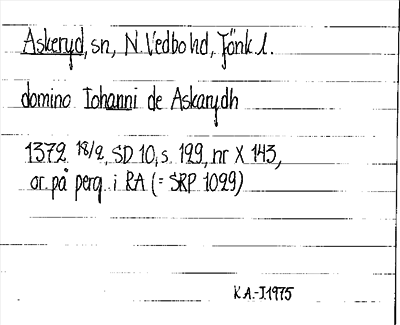 Askeryd, sn, N. Vedbo hd, Jönk l.
domino Iohanni de Askarydh
1379 18/2, SD 10, s. 129, nr X 143,
or. på perg. i RA (= SRP 1029)
K.A.-I.1975